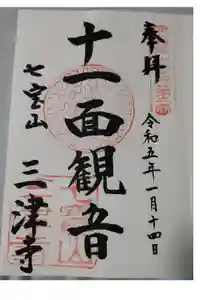 奉拝
令和五年一月十四日
十一面観音
七宝山
三津寺